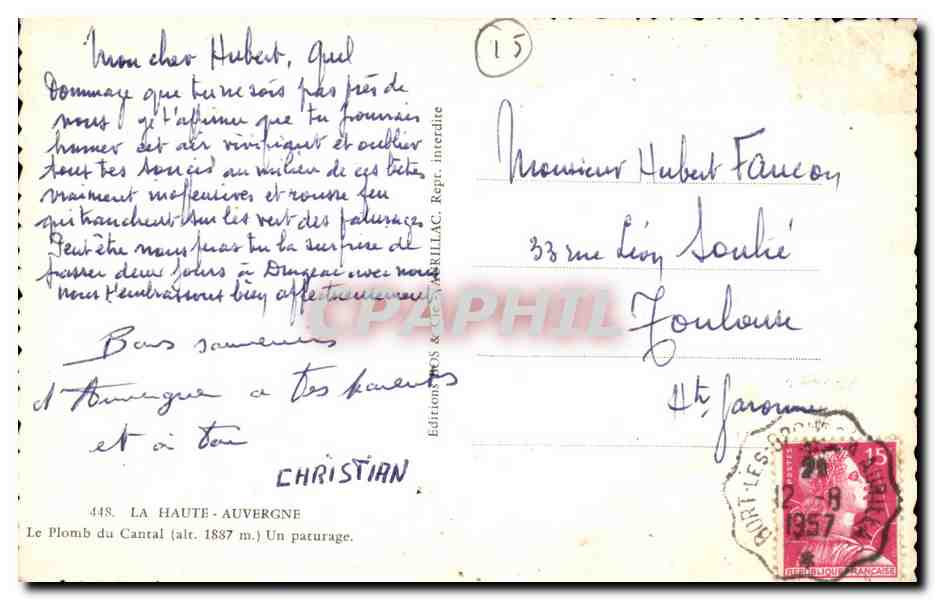 Mon cher Hubert, Quel
Dommage que tu ne sois pas près de
nous je t'affirme que tu pourrais
humer cet air vivifiant et oublier
tout tes soucis au milieu de ces bêtes
vraiment inoffensives et rousse feu
qui tranchent sur les vert des paturages
Peut être nous feras tu la surprise de
passer deux jours à avec nous
nous t'embrassons bien affectueusement
Bons souvenirs
d'Auvergne a tes parents
et à toi
CHRISTIAN
448. LA HAUTE - AUVERGNE
Le Plomb du Cantal (alt. 1887 m.) Un paturage.
Editions BOS & Cie - AURILLAC. Rept. interdite
CPAPHIL
15
Monsieur Hubert Faucon
33 rue Léon Soulié
Toulouse
Hte Garonne
BORT-LES-ORGUES A AURILLAC
12 -8
1957
POSTES
15
REPUBLIQUE FRANÇAISE